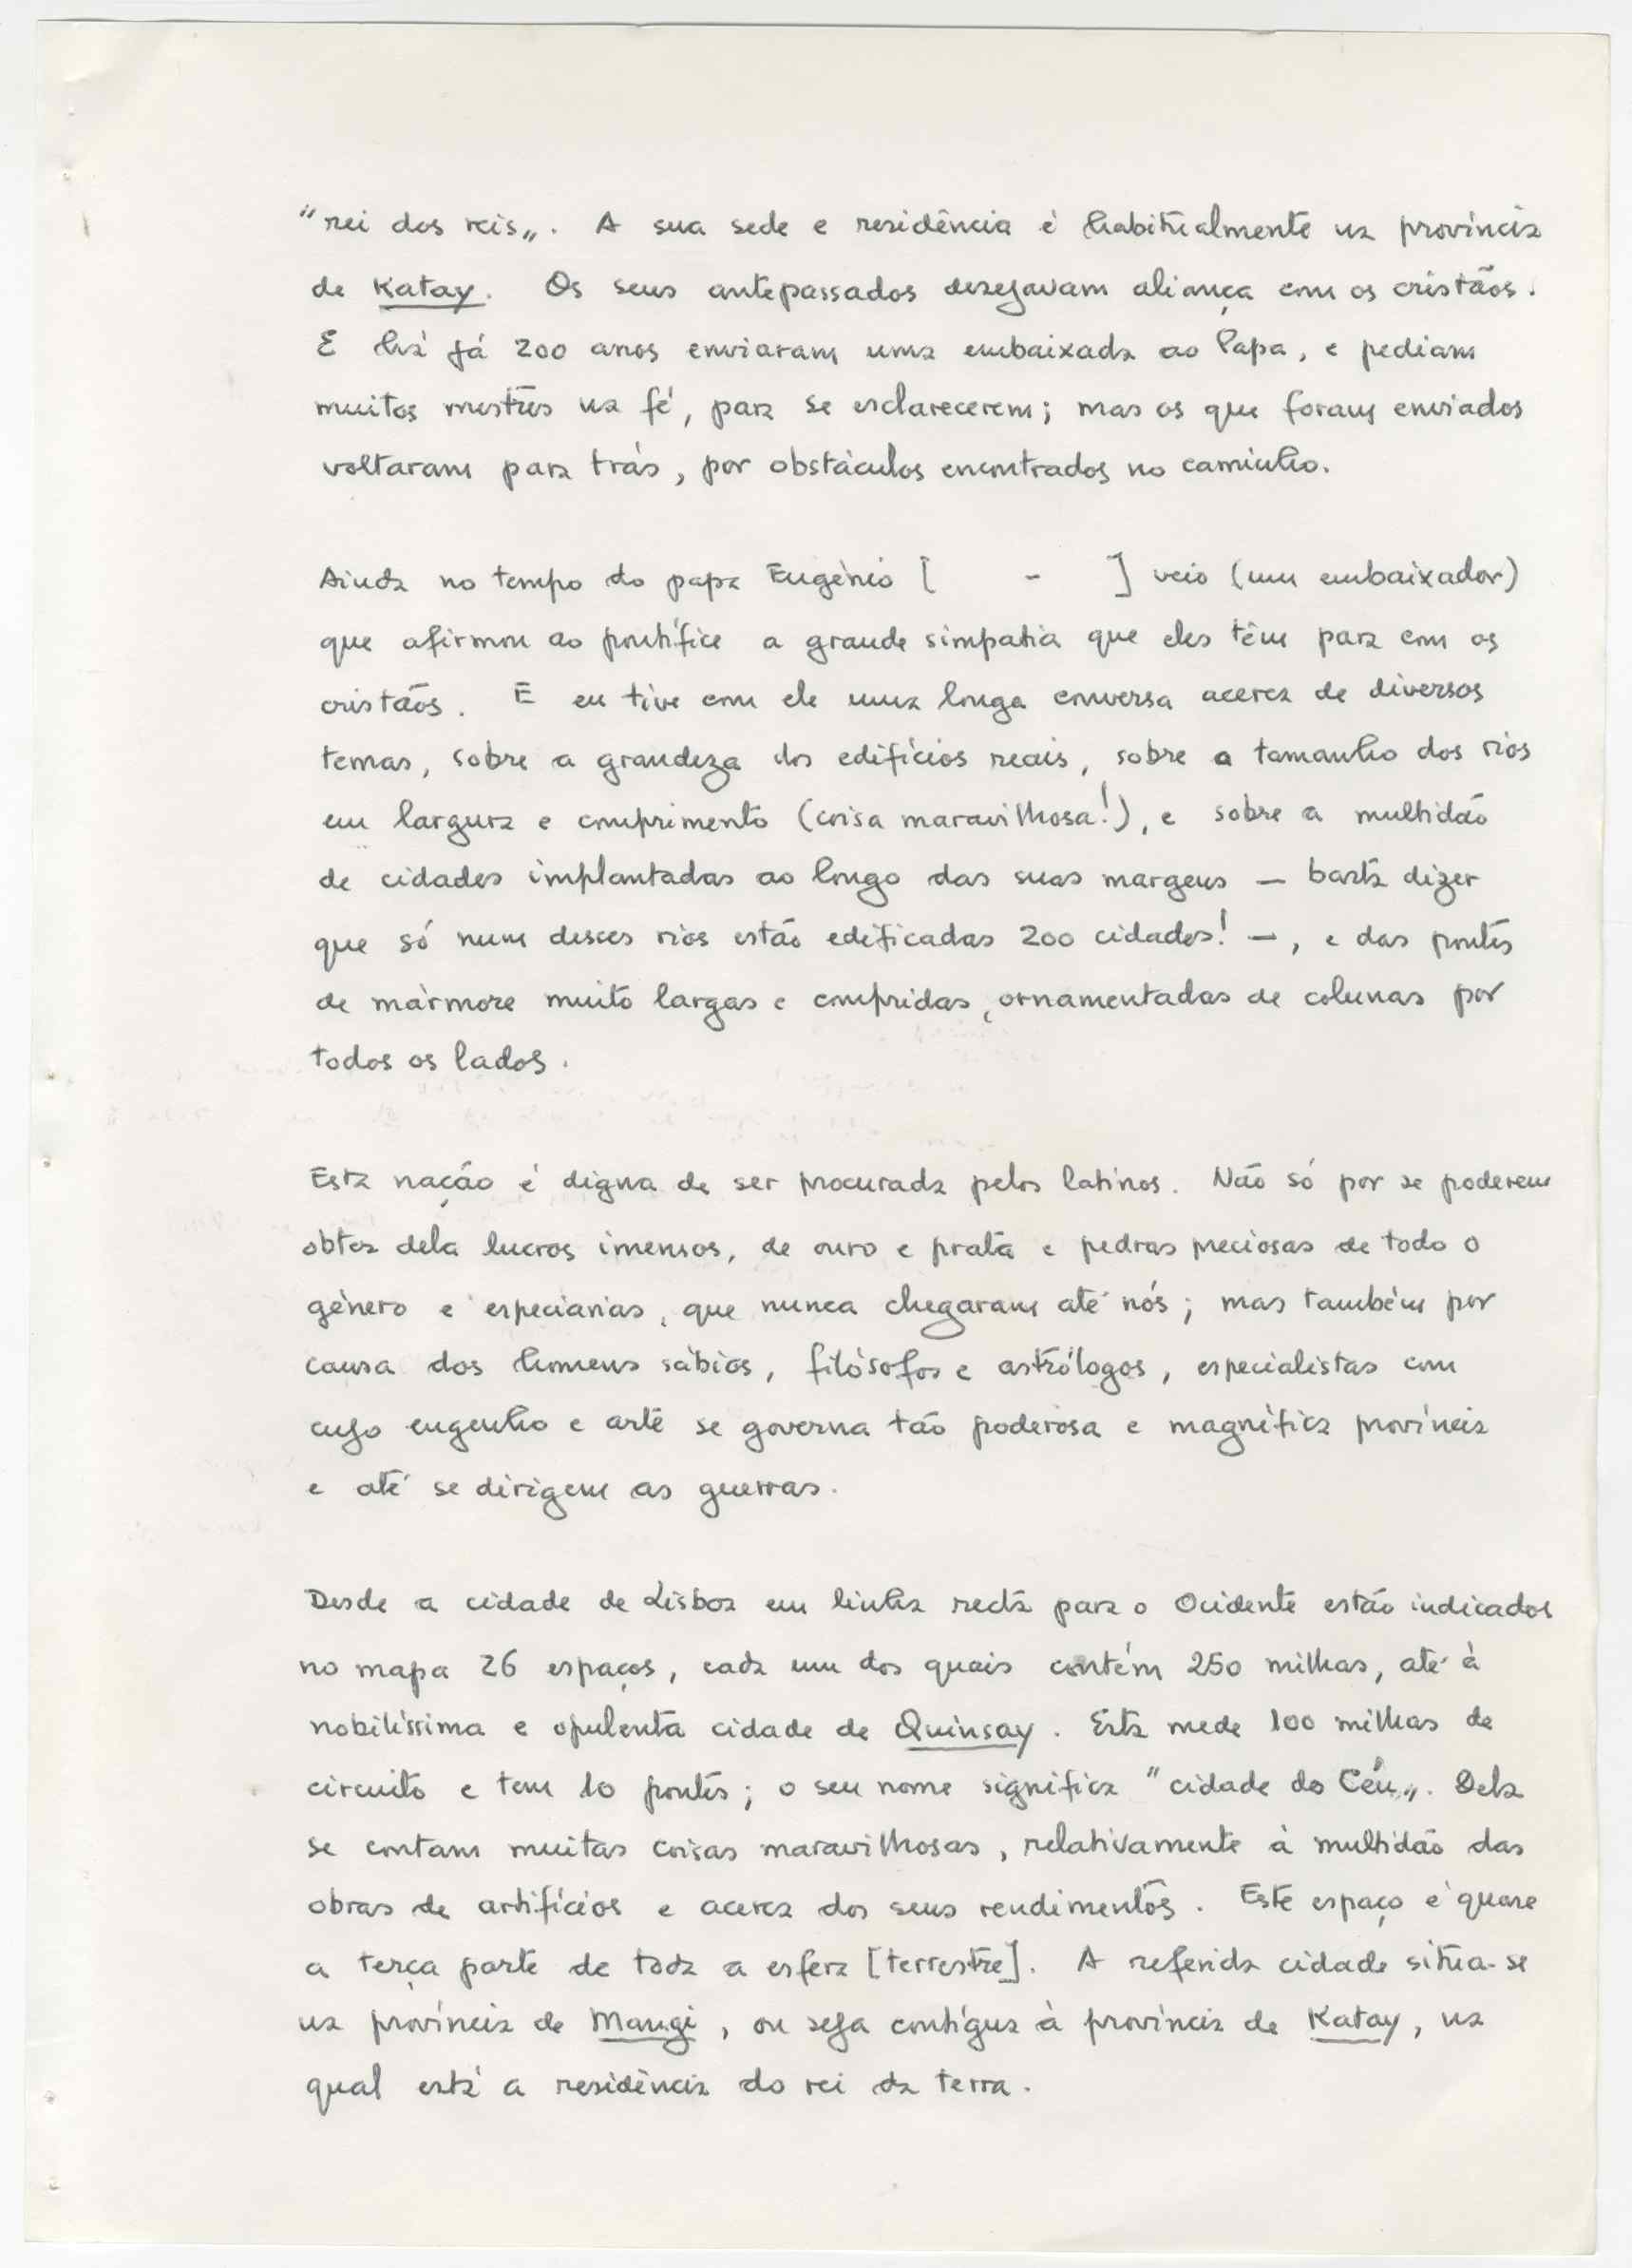 "rei dos reis„. A sua sede e residência é habitualmente na província
de Katay. Os seus antepassados desejavam aliança com os cristãos.
E há já 200 anos enviaram uma embaixada ao Papa, e pediam
muitos mestres na fé, para se esclarecerem; mas os que foram enviados
voltaram para trás, por obstáculos encontrados no caminho.
Ainda no tempo do papa Eugénio [ - ] veio (um embaixador)
que afirmou ao pontífice a grande simpatia que eles têm para com os
cristãos. E eu tive com ele uma longa conversa acerca de diversos
temas, sobre a grandeza dos edifícios reais, sobre o tamanho dos rios
em largura e comprimento (coisa maravilhosa!), e sobre a multidão
de cidades implantadas ao longo das suas margens — basta dizer
que só num desses rios estão edificadas 200 cidades! —, e das pontes
de mármore muito largas e compridas, ornamentadas de colunas por
todos os lados.
Esta nação é digna de ser procurada pelos latinos. Não só por se poderem
obter dela lucros imensos, de ouro e prata e pedras preciosas de todo o
género e especiarias, que nunca chegaram até nós; mas também por
causa dos homens sábios, filósofos e astrólogos, especialistas com
cujo engenho e arte se governa tão poderosa e magnífica província
e até se dirigem as guerras.
Desde a cidade de Lisboa em linha recta para o Ocidente estão indicados
no mapa 26 espaços, cada um dos quais contém 250 milhas, até à
nobilíssima e opulenta cidade de Quinsay. Esta mede 100 milhas de
circuito e tem 10 pontes; o seu nome significa "cidade do Céu„. Dela
se contam muitas coisas maravilhosas, relativamente à multidão das
obras de artifícios e acerca dos seus rendimentos. Este espaço é quase
a terça parte de toda a esfera [terrestre]. A referida cidade situa-se
na província de Mangi, ou seja contígua à província de Katay, na
qual está a residência do rei da terra.